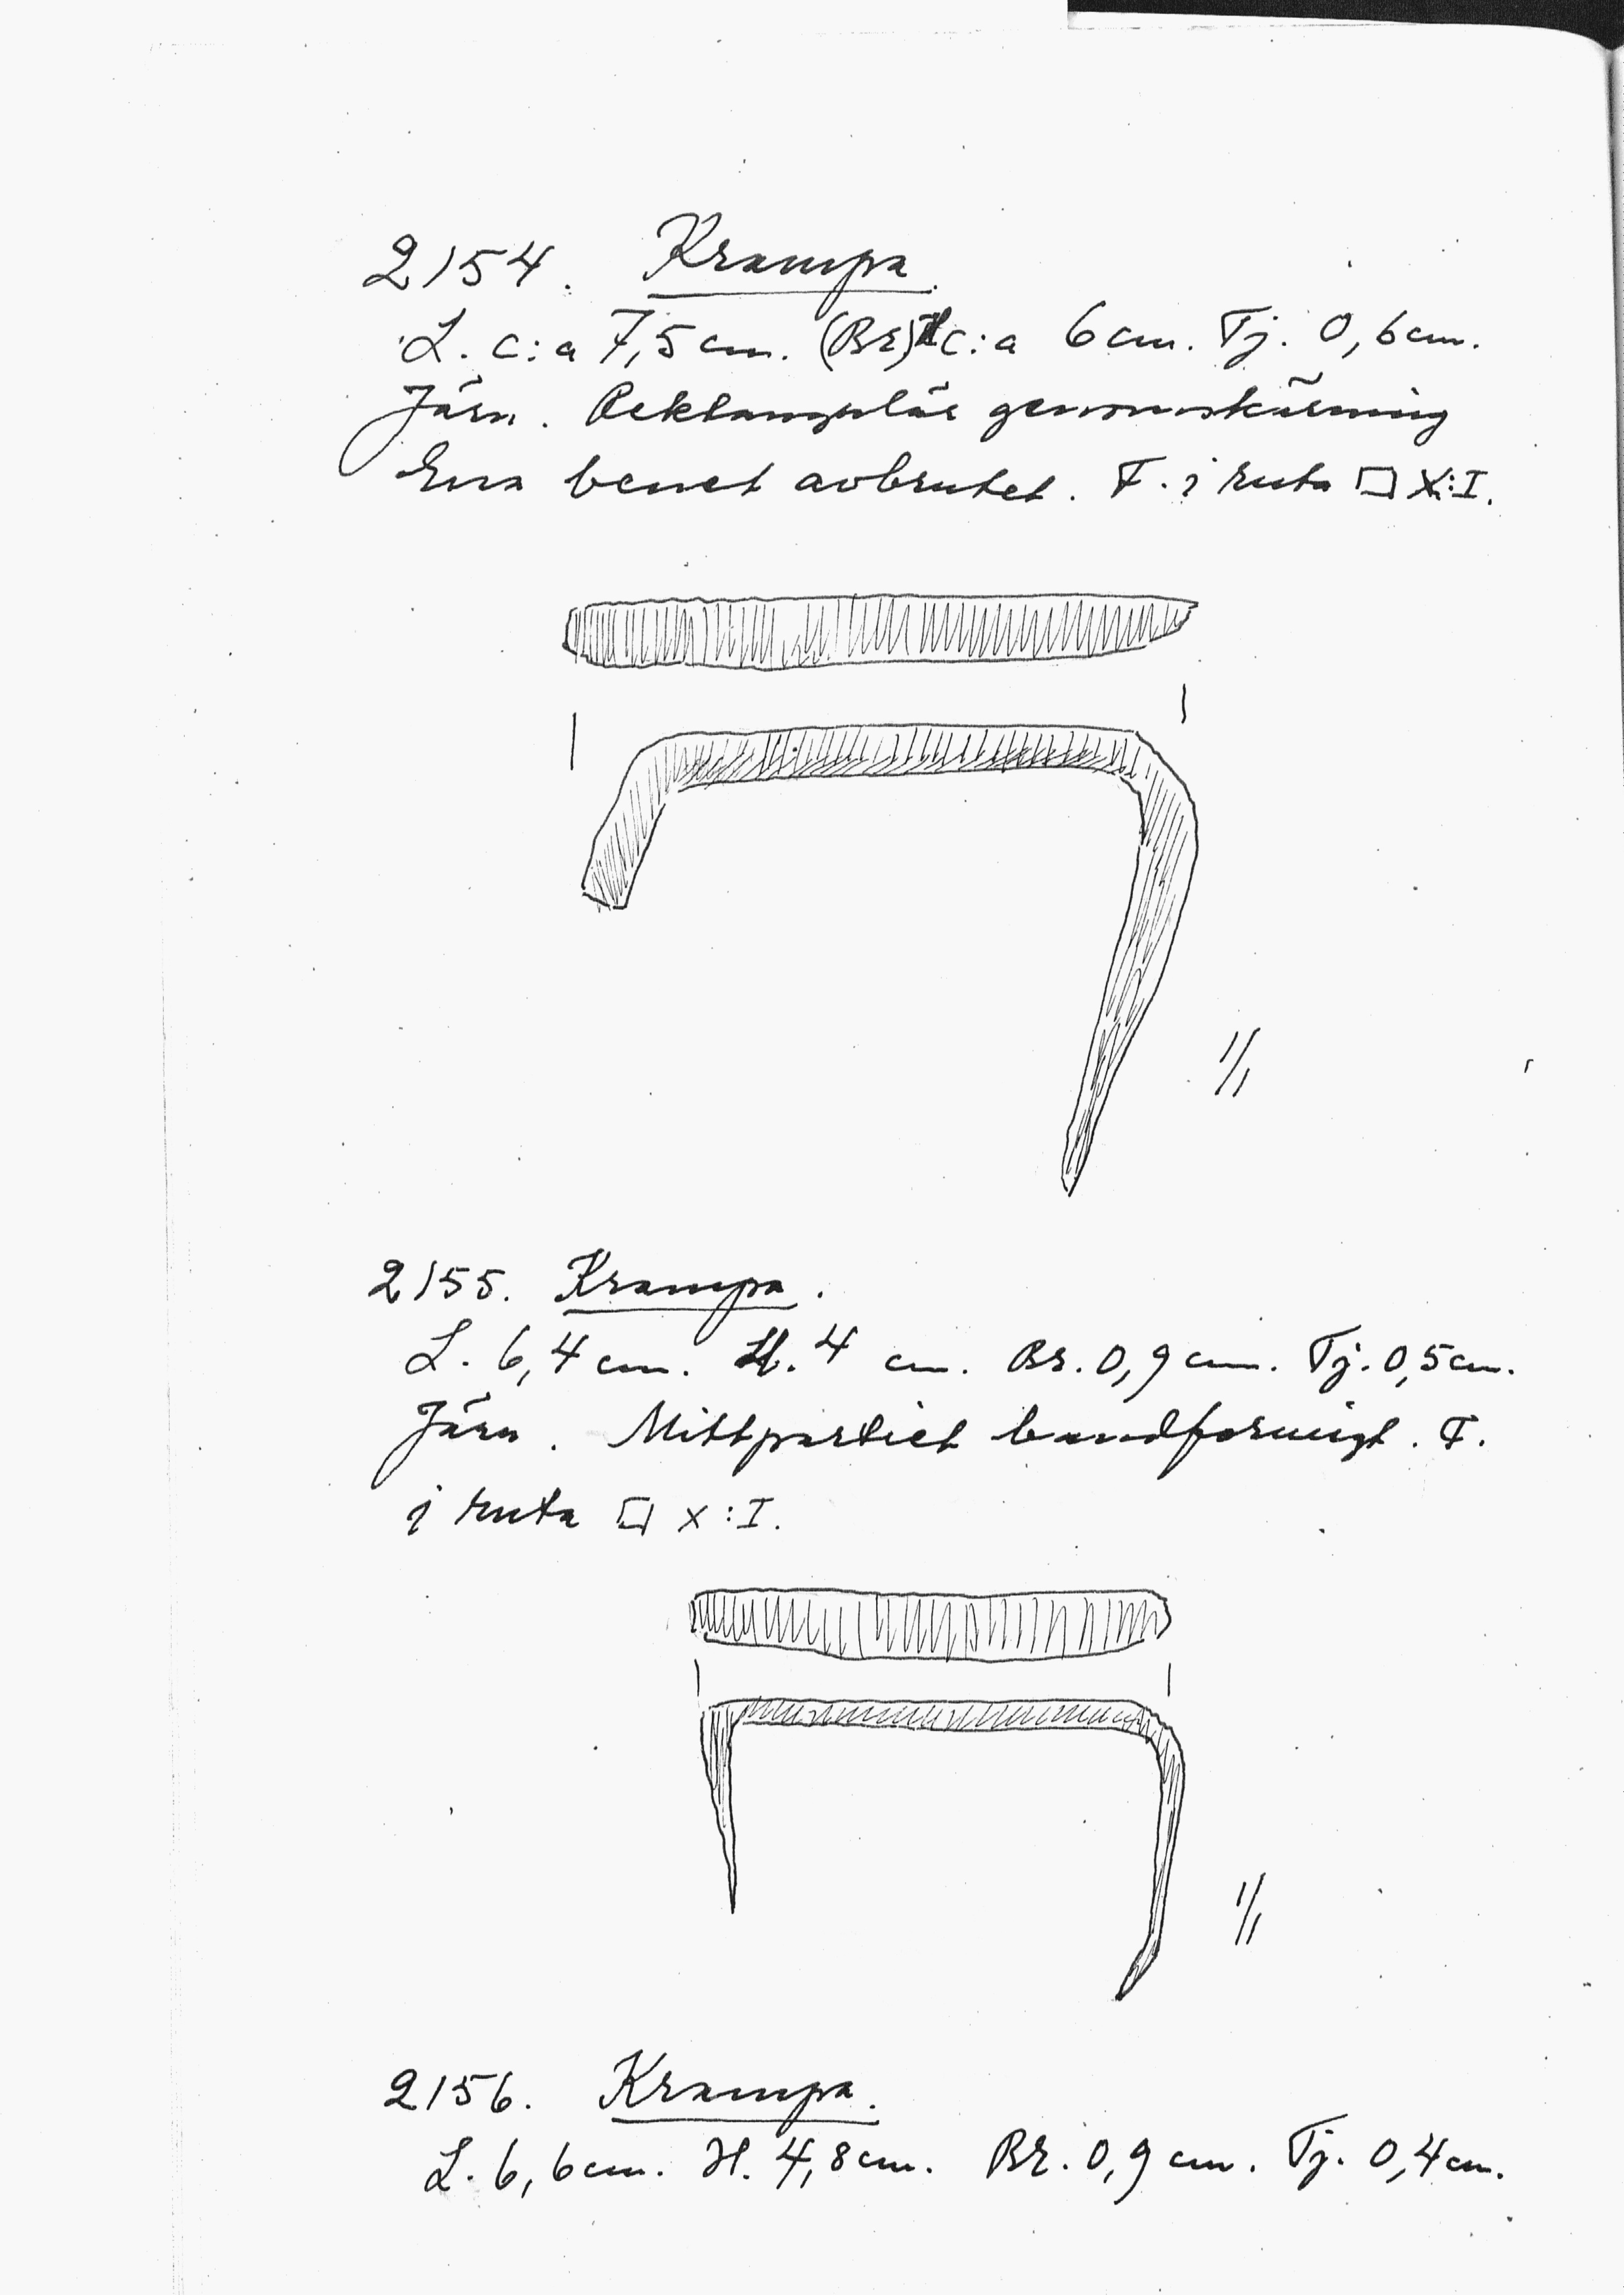 2154. Krampa.
L. c:a 7,5 cm. (Br) H c:a 6 cm. Tj. 0,6 cm.
Järn. Rektangulär genomskärning
Ena benet avbrutet. F. i ruta □ X:I.
1/1
2155. Krampa.
L. 6,4 cm. H. 4 cm. Br. 0,9 cm. Tj. 0,5 cm.
Järn. Mittpartiet bandformigt. F.
i ruta □ X:I.
1/1
2156. Krampa.
L. 6,6 cm. H. 4,8 cm. Br. 0,9 cm. Tj. 0,4 cm.